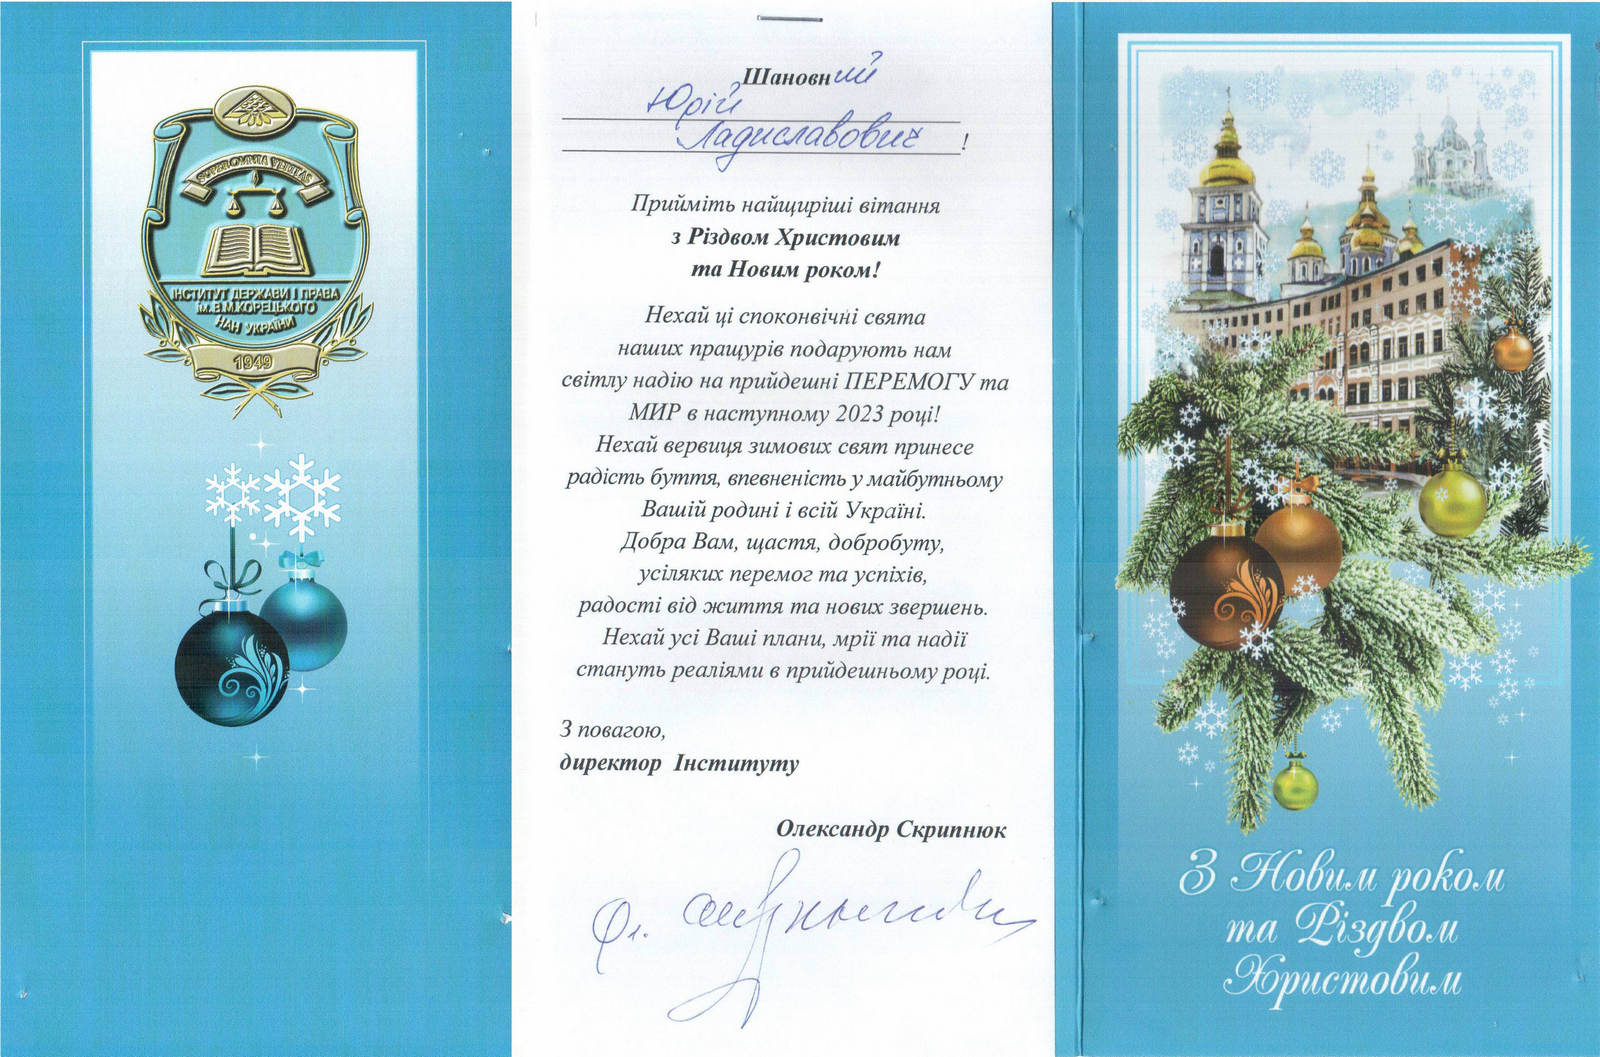 SUPER OMNIA VERITAS
ІНСТИТУТ ДЕРЖАВИ І ПРАВА
ім.В.М.КОРЕЦЬКОГО
НАН УКРАЇНИ
1949
Шановний
Юрій
Ладиславович!
Прийміть найщиріші вітання
з Різдвом Христовим
та Новим роком!
Нехай ці споконвічні свята
наших пращурів подарують нам
світлу надію на прийдешні ПЕРЕМОГУ та
МИР в наступному 2023 році!
Нехай вервиця зимових свят принесе
радість буття, впевненість у майбутньому
Вашій родині і всій Україні.
Добра Вам, щастя, добробуту,
усіляких перемог та успіхів,
радості від життя та нових звершень.
Нехай усі Ваші плани, мрії та надії
стануть реаліями в прийдешньому році.
З повагою,
директор Інституту
Олександр Скрипнюк
З Новим роком
та Різдвом
Христовим